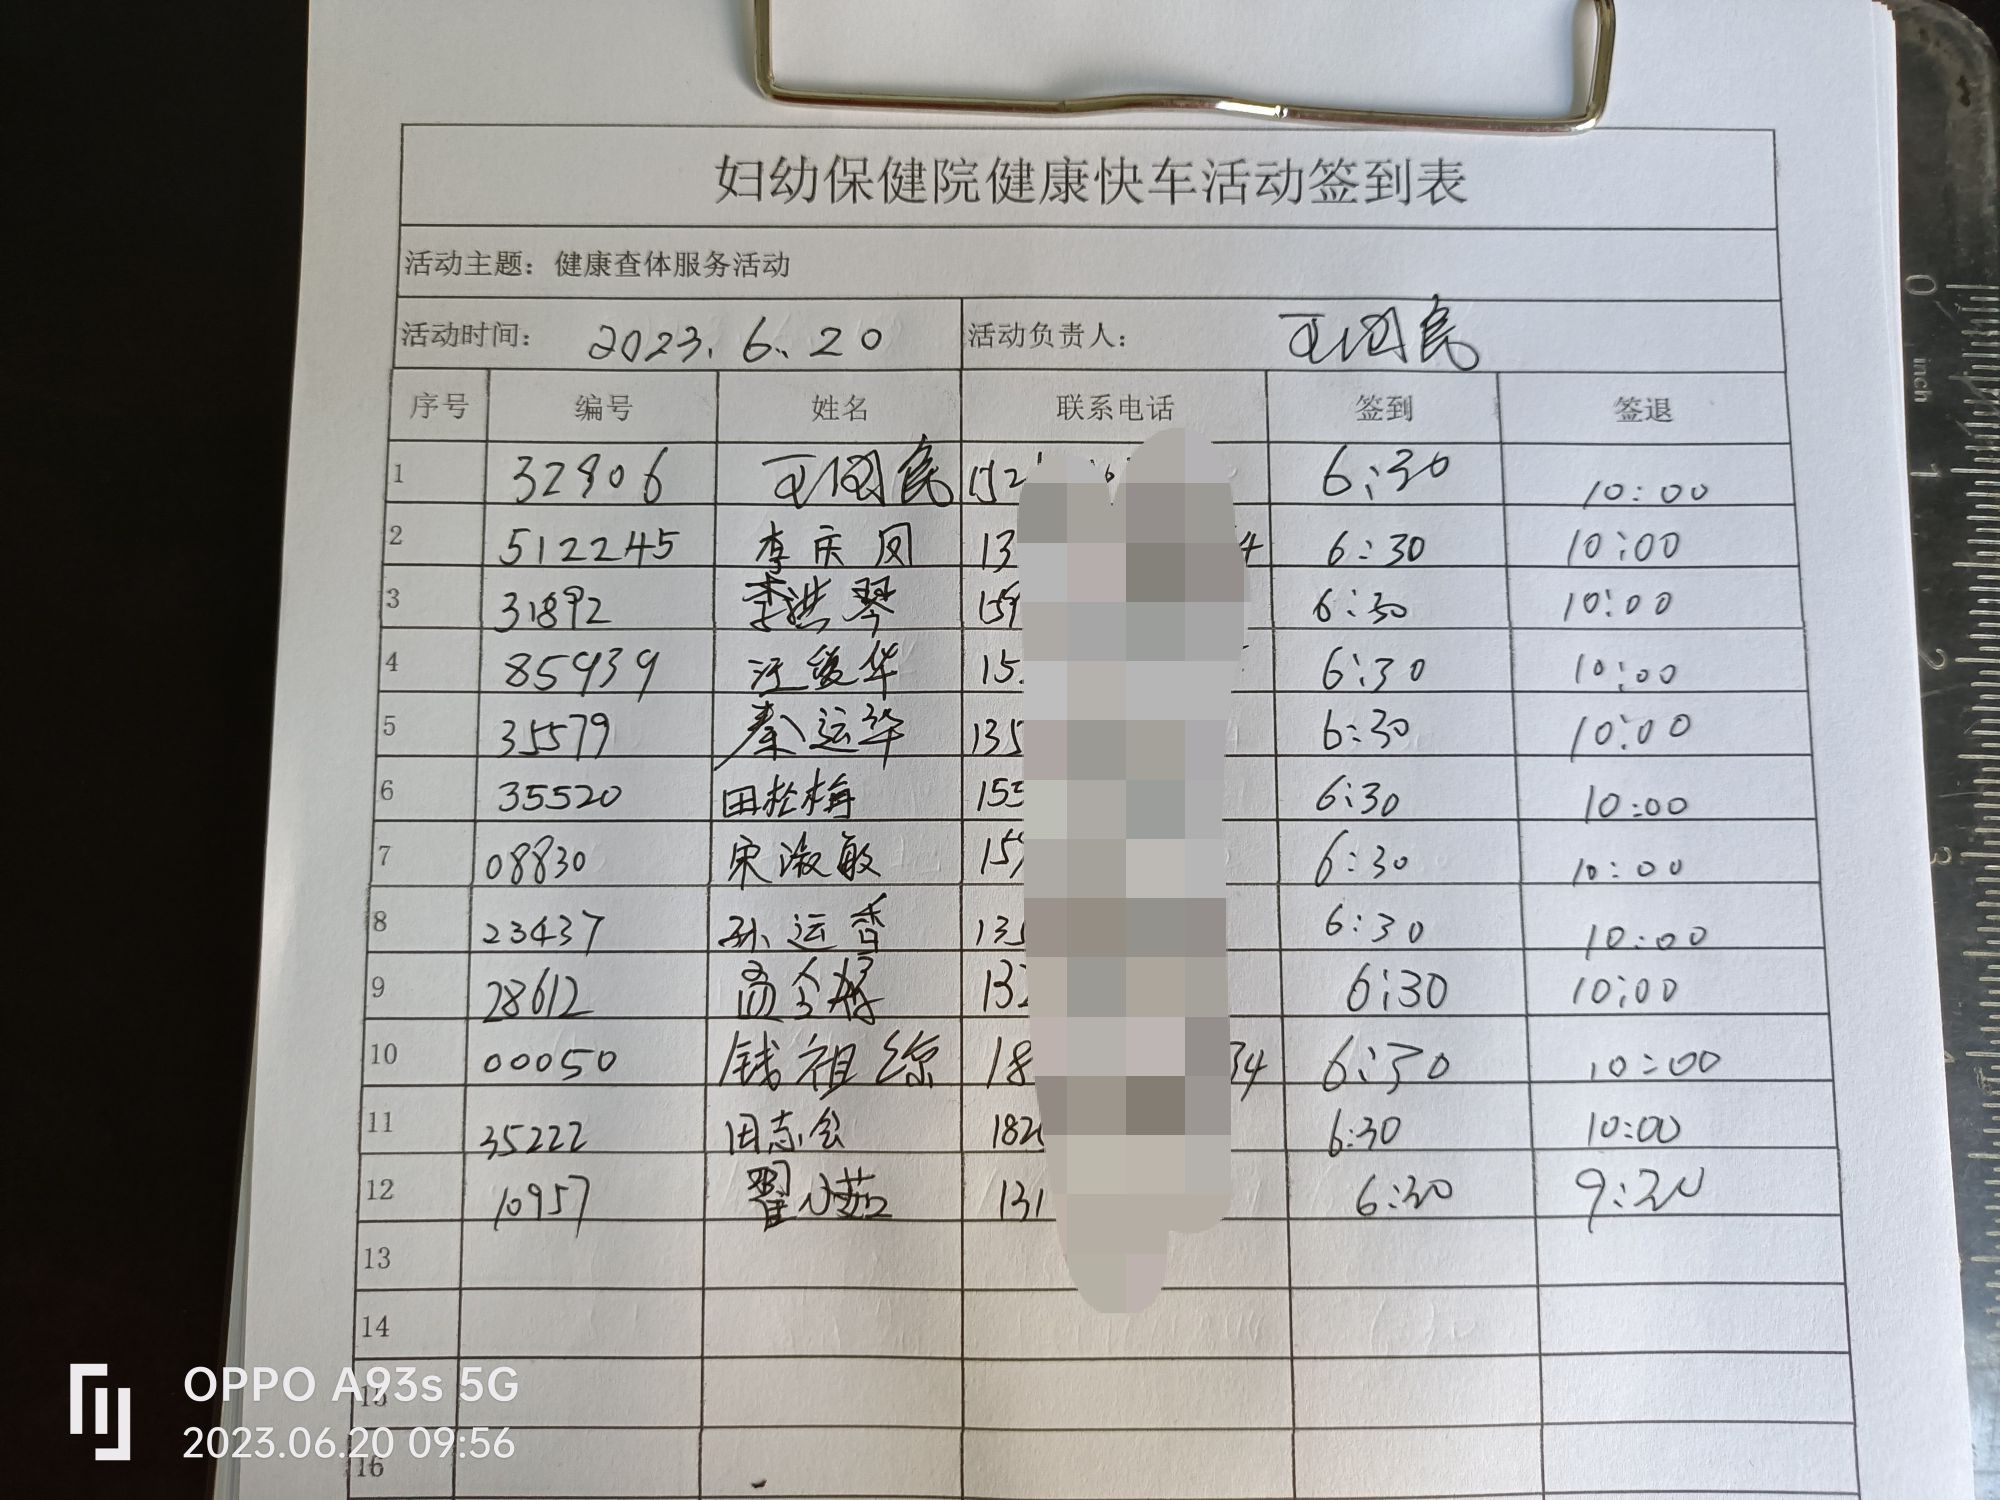 妇幼保健院健康快车活动签到表
活动主题：健康查体服务活动
活动时间： 2023.6.20 活动负责人： 王国民
序号 编号 姓名 联系电话 签到 签退
1 32806 王国民 152 6:30 10:00
2 512245 李庆凤 13 4 6:30 10:00
3 31892 李洪琴 159 6:30 10:00
4 85939 汪爱华 15 6:30 10:00
5 35579 秦运华 135 6:30 10:00
6 35520 田松梅 155 6:30 10:00
7 08830 宋淑敏 15 6:30 10:00
8 23437 孙运香 135 6:30 10:00
9 28612 132 6:30 10:00
10 00050 钱祖综 18 34 6:30 10:00
11 35222 田志会 182 6:30 10:00
12 10957 翟小茹 131 6:30 9:20
13
14
15
16
OPPO A93s 5G
2023.06.20 09:56
0
inch
1
2
3